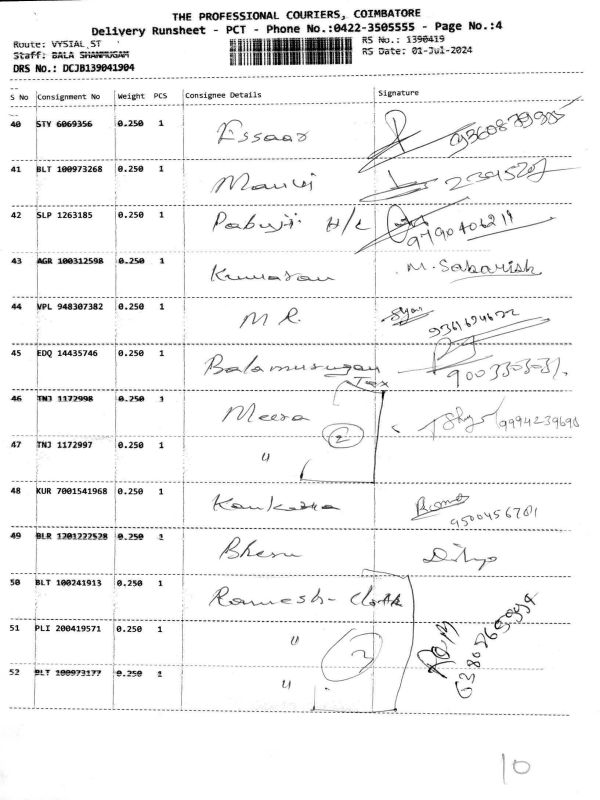 THE PROFESSIONAL COURIERS, COIMBATORE
Delivery Runsheet - PCT - Phone No.:0422-3505555 - Page No.:4
Route: VYSIAL ST RS No.: 1390419
Staff: BALA SHANMUGAM RS Date: 01-Jul-2024
DRS No.: DCJB139041904
S No Consignment No Weight PCS Consignee Details Signature
40 STY 6069356 0.250 1 Essaar
41 BLT 100973268 0.250 1
42 SLP 1263185 0.250 1 Pabuji H/C 9790406219
43 AGR 100312598 0.250 1 Kumaran M. Sabarish
44 VPL 948307382 0.250 1 M R.
45 EDQ 14435746 0.250 1 Balamurugan
Tex
46 TNJ 1172998 0.250 1 Meera 9994239698
2
47 TNJ 1172997 0.250 1 "
48 KUR 7001541968 0.250 1 9500456781
49 BLR 1201222528 0.250 1
50 BLT 100241913 0.250 1 Ramesh - Cloth
51 PLI 200419571 0.250 1 "
52 BLT 100973177 0.250 1 "
10